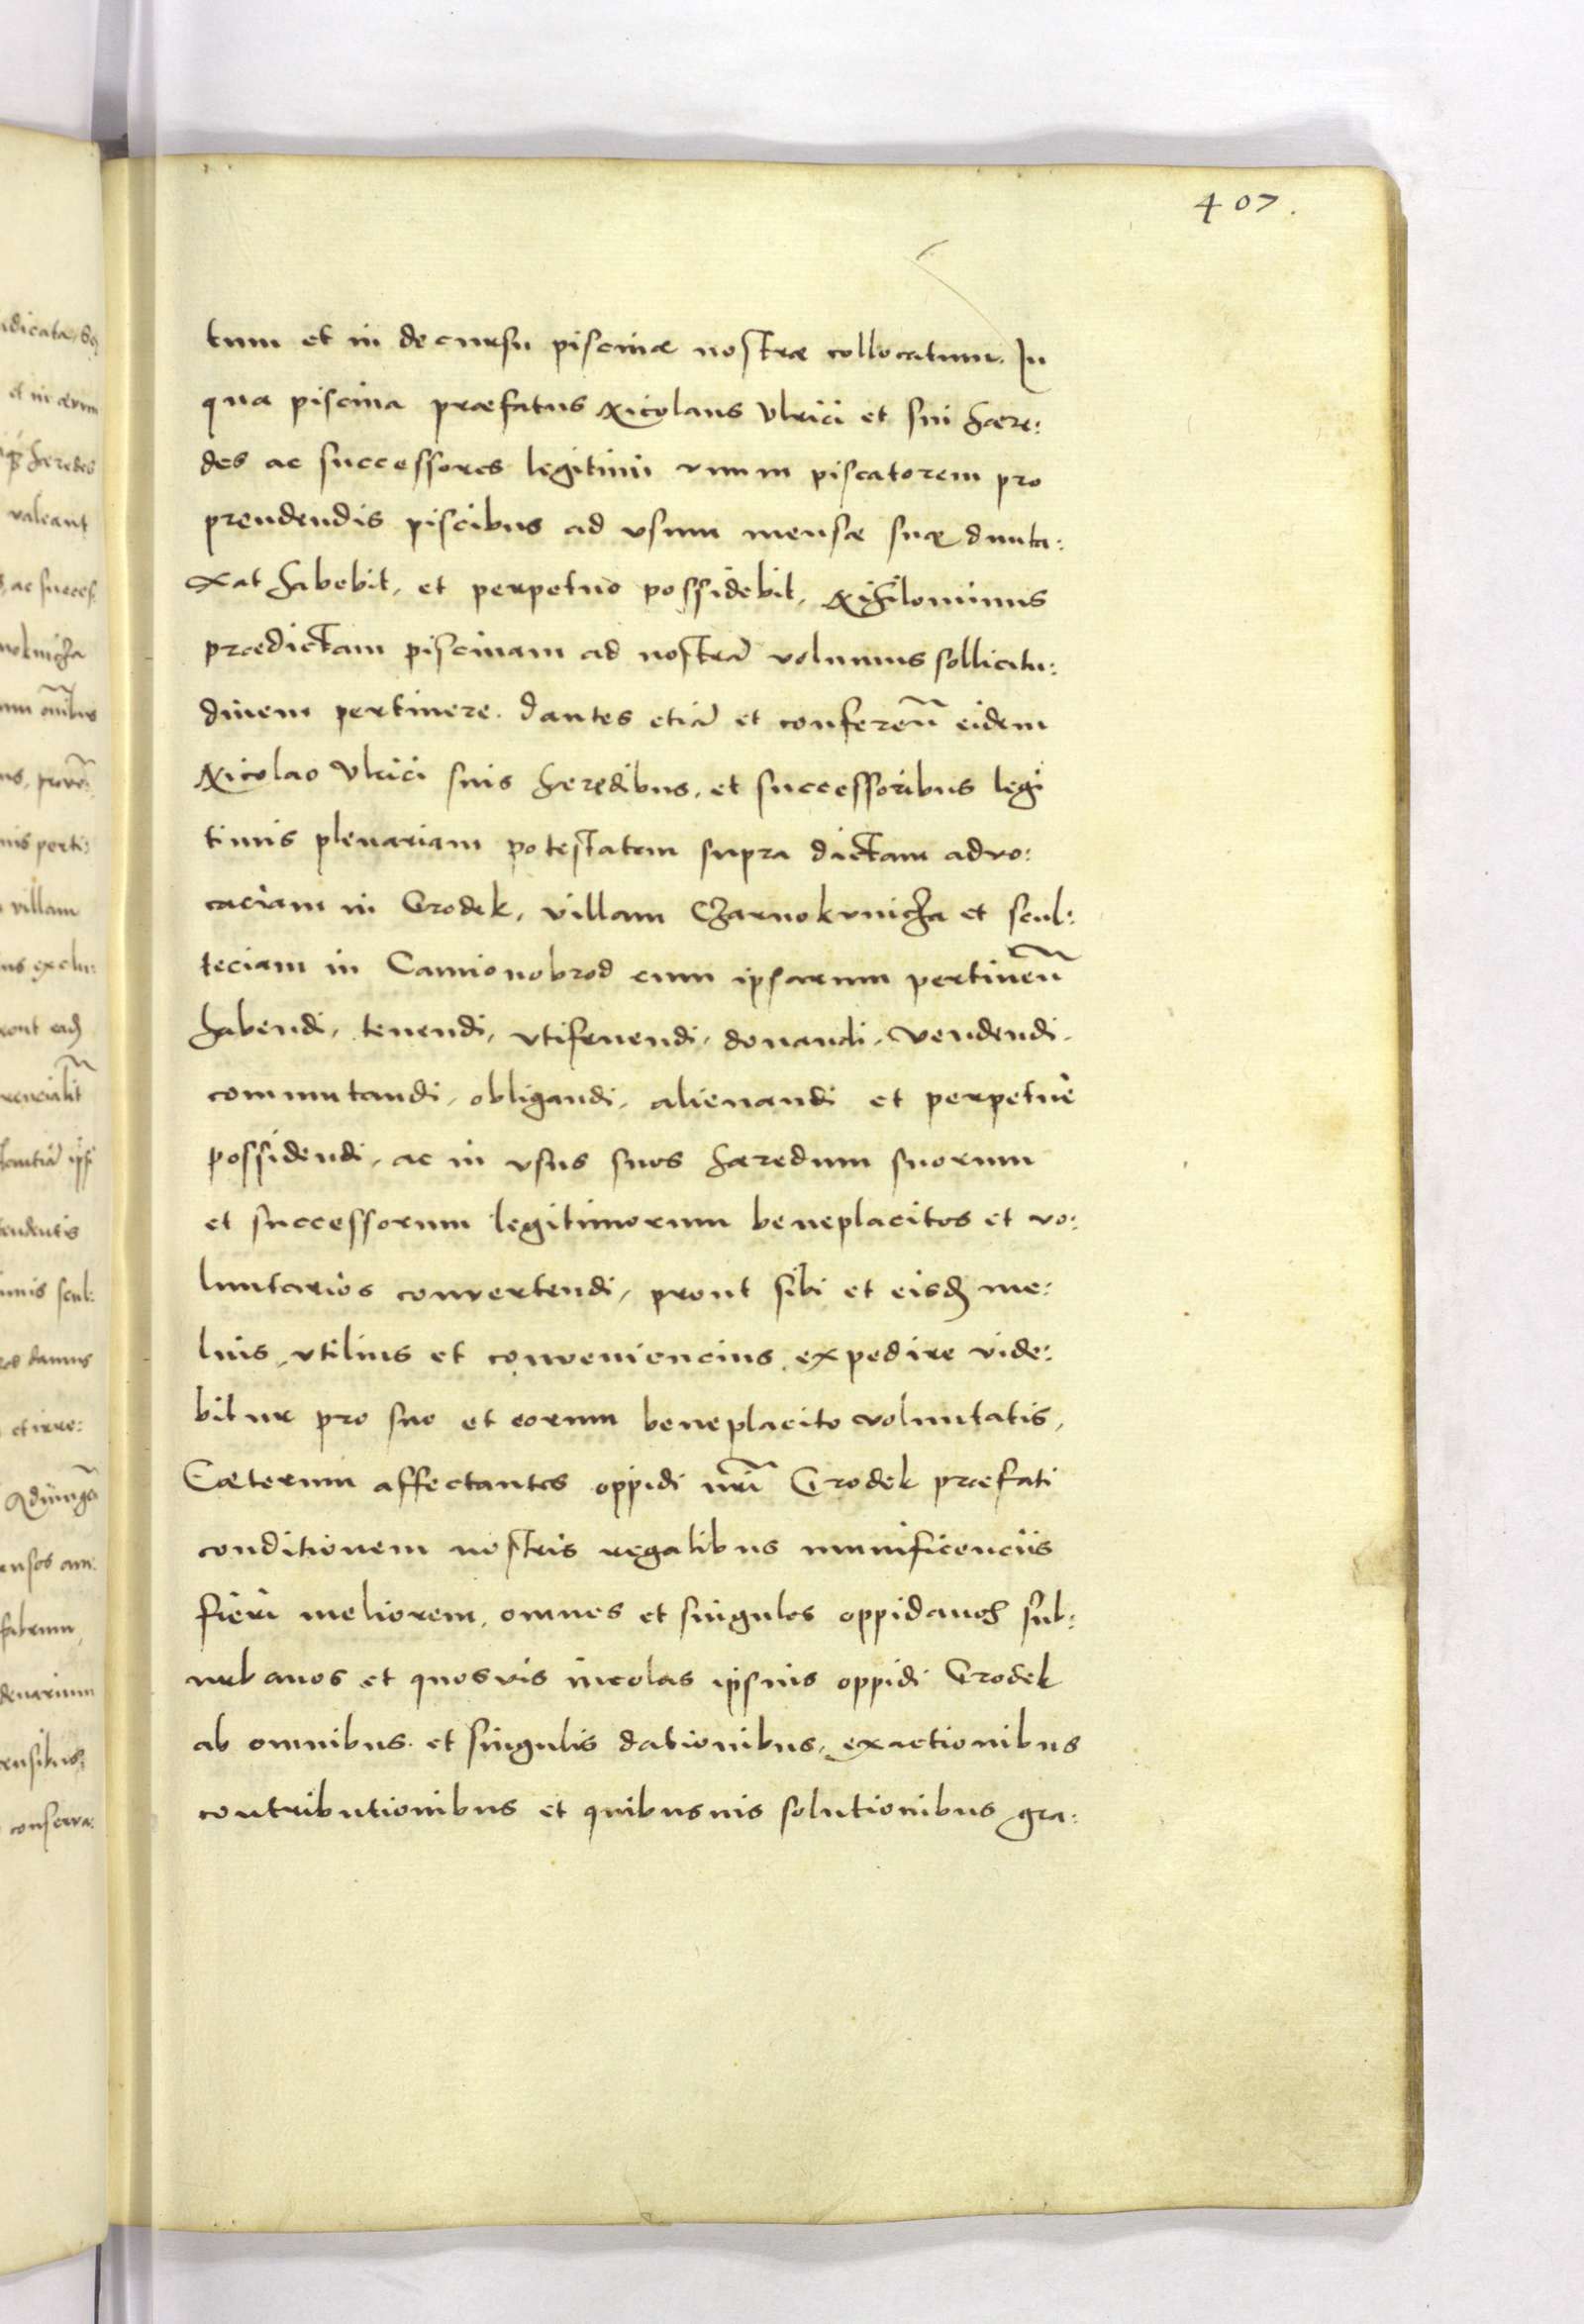 407.
tum et in decursu piscinæ nostræ collocatum. In
qua piscina præfatus Nicolaus Vlrici et sui hære:
des ac successores legitimi vnum piscatorem pro
prendendis piscibus ad vsum mensæ suæ dunta:
xat habebit, et perpetuo possidebit, Nihilominus
prædictam piscinam ad nostrã volumus sollicitu:
dinem pertinere. dantes etiã et conferen̄ eidem
Nicolao Vlrici suis heredibus, et successoribus legi
timis plenariam potestatem supra dictam advo:
caciam in Grodek, villam Czarnokunicza et scul:
teciam in Camionobrod cum ipsarum pertinen̄
habendi, tenendi, vtifruendi, donandi, vendendi,
commutandi, obligandi, alienandi et perpetue
possidendi, ac in vsus suos hæredum suorum
et successorum legitimorum beneplacitos et vo:
luntarios convertendi, prout sibi et eisdꝫ me:
lius, vtilius et conveniencius expedire vide:
bitur pro suo et eorum beneplacito voluntatis,
Cæterum affectantes oppidi nr̄i Grodek præfati
conditionem nostris regalibus munificenciis
fieri meliorem, omnes et singulos oppidanos sub:
urbanos et quosvis incolas ipsius oppidi Grodek
ab omnibus et singulis dationibus, exactionibus
contributionibus et quibusuis solutionibus gra: